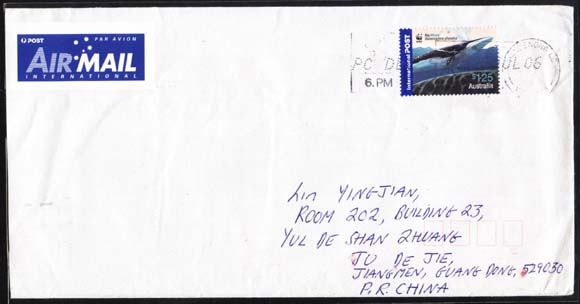 POST PAR AVION
AIR MAIL
INTERNATIONAL
International POST
Fin Whale
Balaenoptera physalus
WWF
$1.25
Australia
6. PM
UL 06
LIN YINGJIAN,
ROOM 202, BUILDING 23,
YUL DE SHAN ZHUANG
JU DE JIE,
JIANGMEN, GUANG DONG, 529030
P.R. CHINA